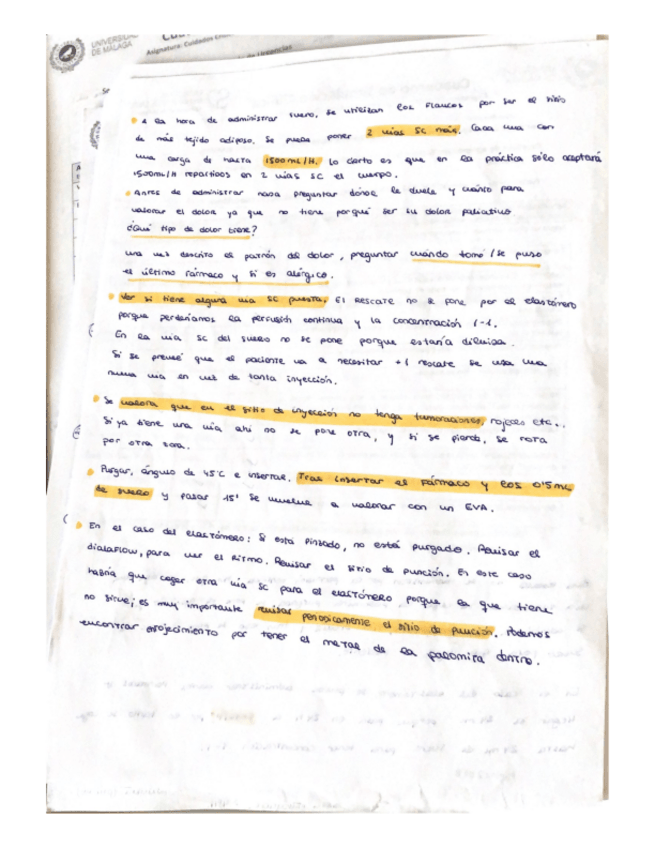 UNIVERSIDAD
DE MÁLAGA
Asignatura: Cuidados
Urgencias
• A la hora de administrar suero, se utilizan los flancos por ser el sitio
de más tejido adiposo. Se puede poner 2 vías SC más. Cada una con
una carga de hasta 1500mL/H. Lo cierto es que en la práctica sólo aceptará
1500mL/H repartidos en 2 vías SC el cuerpo.
• Antes de administrar nada preguntar dónde le duele y cuánto para
valorar el dolor ya que no tiene por qué ser su dolor paliativo
¿Qué tipo de dolor tiene?
Una vez descrito el patrón del dolor, preguntar cuándo tomó / se puso
el último fármaco y si es alérgico.
• Ver si tiene alguna vía SC puesta. El rescate no se pone por el elastómero
porque perderíamos la perfusión continua y la concentración 1-1.
En la vía SC del suero no se pone porque estaría diluida.
Si se prevee que el paciente va a necesitar +1 rescate se usa una
nueva vía en vez de tanta inyección.
• Se valora que en el sitio de inyección no tenga tumoraciones, rojeces etc..
Si ya tiene una vía ahí no se pone otra, y si se pierde, se rota
por otra zona.
• Purgar, ángulo de 45°C e insertar. Tras insertar el fármaco y los 0'5mL
de suero y pasar 15' se vuelve a valorar con un EVA.
• En el caso del elastómero: Si está pinzado, no está purgado. Revisar el
dialaflow, para ver el ritmo. Revisar el sitio de punción. En este caso
habría que coger otra vía SC para el elastómero porque la que tiene
no sirve; es muy importante revisar periodicamente el sitio de punción. Podemos
encontrar enrojecimiento por tener el metal de la palomita dentro.